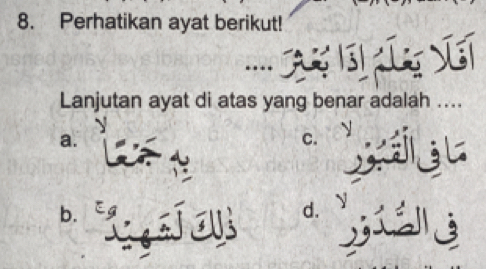 8. Perhatikan ayat berikut!
اَفَلَا يَعْلَمُ اِذَا بُعْثِرَ ....
Lanjutan ayat di atas yang benar adalah ....
a. بِهٖ جَمْعًاۙ
c. مَا فِى الْقُبُوْرِۙ
b. ذٰلِكَ لَشَهِيْدٌۚ
d. فِى الصُّدُوْرِۙ